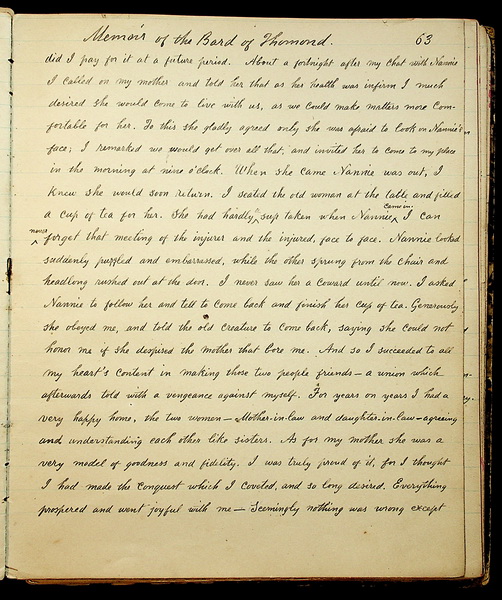 Memoir of the Bard of Thomond. 63
did I pay for it at a future period. About a fortnight after my chat with Nannie
I called on my mother and told her that as her health was infirm I much
desired she would come to live with us, as we could make matters more com-
fortable for her. To this she gladly agreed only she was afraid to look on Nannie's
face; I remarked we would get over all that, and invited her to come to my place
in the morning at nine o'clock. When she came Nannie was out, I
knew she would soon return. I seated the old woman at the table and filled
a cup of tea for her. She had hardly sup taken when Nannie came in I can
never forget that meeting of the injurer and the injured, face to face. Nannie looked
suddenly puzzled and embarrassed, while the other sprung from the chair and
headlong rushed out at the don. I never saw her a coward until now. I asked
Nannie to follow her and tell to come back and finish her cup of tea. Generously
she obeyed me, and told the old creature to come back, saying she could not
honor me if she despised the mother that bore me. And so I succeeded to all
my heart's content in making those two people friends — a union which
afterwards told with a vengeance against myself. For years on years I had a
very happy home, the two women — Mother-in-law and daughter-in-law — agreeing
and understanding each other like sisters. As for my mother she was a
very model of goodness and fidelity. I was truly proud of it, for I thought
I had made the conquest which I coveted, and so long desired. Everything
prospered and went joyful with me — Seemingly nothing was wrong except